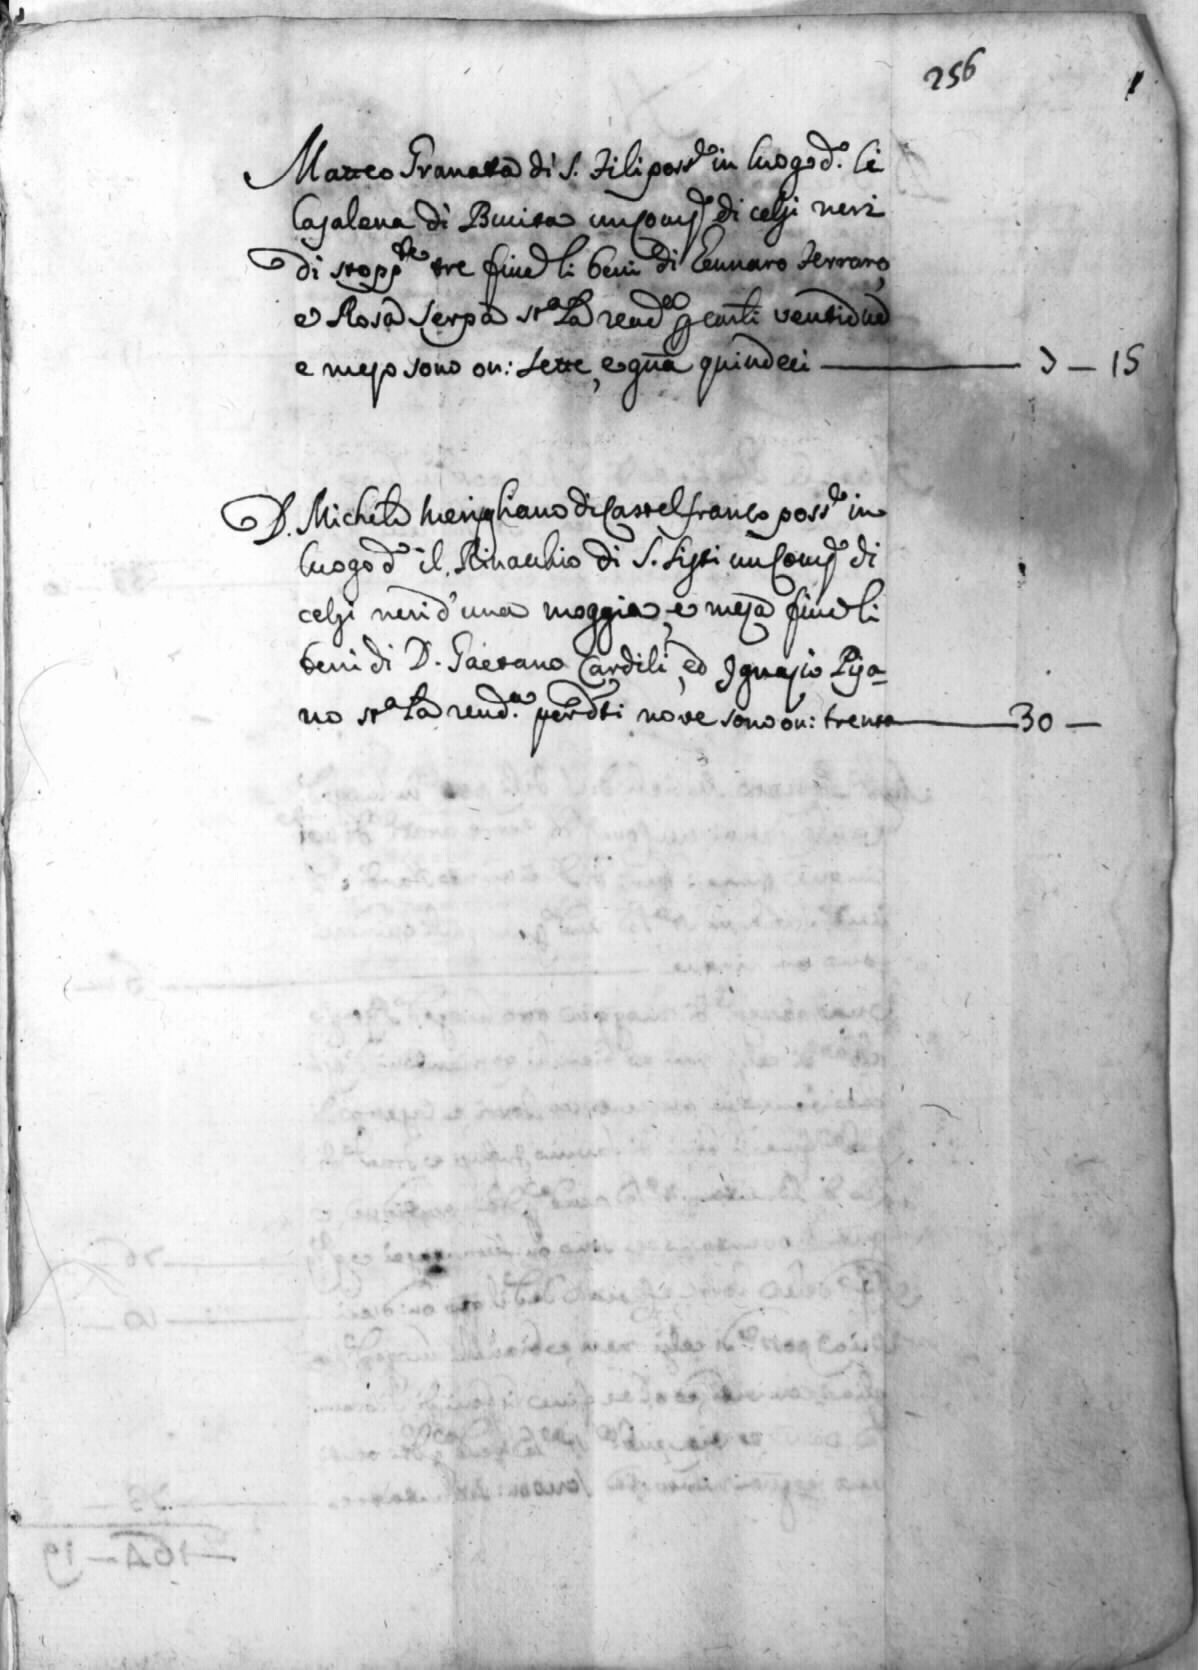 256
Matteo Granata di S. Fili poss.de in luogo d.o li
Casalena di Bucita un Comp.o di celsi neri
di stopp.te tre fine li beni di Gennaro Ferraro,
e Rosa Serpa st.a la rend.a p carli ventidue
e mezo sono on: sette, e gna quindeci — 7 — 15
D. Michele Merigliano di Castelfranco poss.de in
luogo d.o il Pinacchio di S. Sisti un Comp.o di
celsi neri d'una moggia, e meza fine li
beni di D. Gaetano Cardili, ed Ignazio Pisa=
no st.a la rend.a per d.ti nove sono on: trenta — 30 —